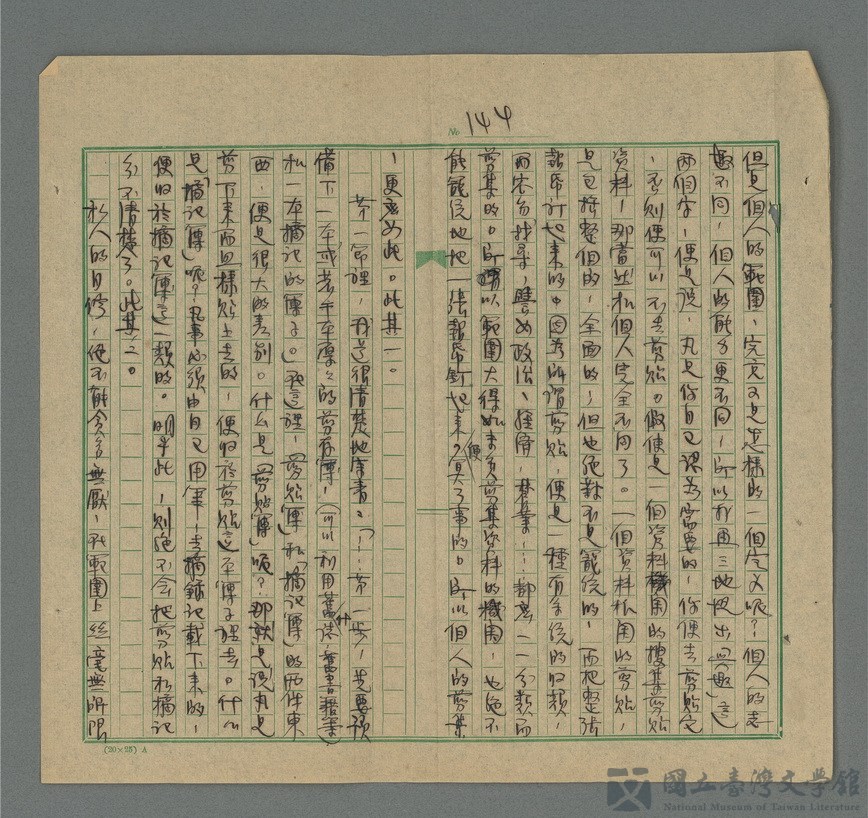 № 144
但是個人的範圍，究竟又是怎樣的一個定义呢？個人的志
趣不同，個人的能力更不同，所以我再三地提出「興趣」這
兩個字，便是說，凡是你自己認為需要的，你便去剪貼它
，否則便可以不去剪貼。假使是一個資料機関的搜集剪貼
資料，那當然和個人完全不同了。一個資料机関的剪貼，
是包括整個的，全面的，但也絕對不是籠統的，而把整張
報帋訂起来的。因為所謂剪貼，便是一種有系統的归類，
而容易找尋，譬如政治、經濟，……都要一一分類而
剪集的。所以範圍大得如来負剪集資料的機関，也絕不
能籠統地把一張報帋釘起来便算了事的。所以個人的剪集
，更應如此。此其一。
第一節裡，我是很清楚地寫着：「……第一步，先要預
備下一本或者若干本厚厚的剪存簿，（可以利用舊什誌舊書籍等）
和一本摘記的簿子。」在這裡，「剪貼簿」和「摘記簿」的两件東
西，便是很大的差别。什么是「剪貼簿」呢？那就是说凡是
剪下来而且樣貼上去的，便归於剪貼這本簿子裡去。什么
是「摘記簿」呢？凡事必須由自己用筆，去摘錄記載下来的，
便归於摘記簿這一類的。明乎此，則絕不会把剪貼和摘記
分不清楚了。此其二。
私人的目標，絕不能貪多無厭，在範圍上絲毫無所限
(20×25) A
國立臺灣文學館
National Museum of Taiwan Literature